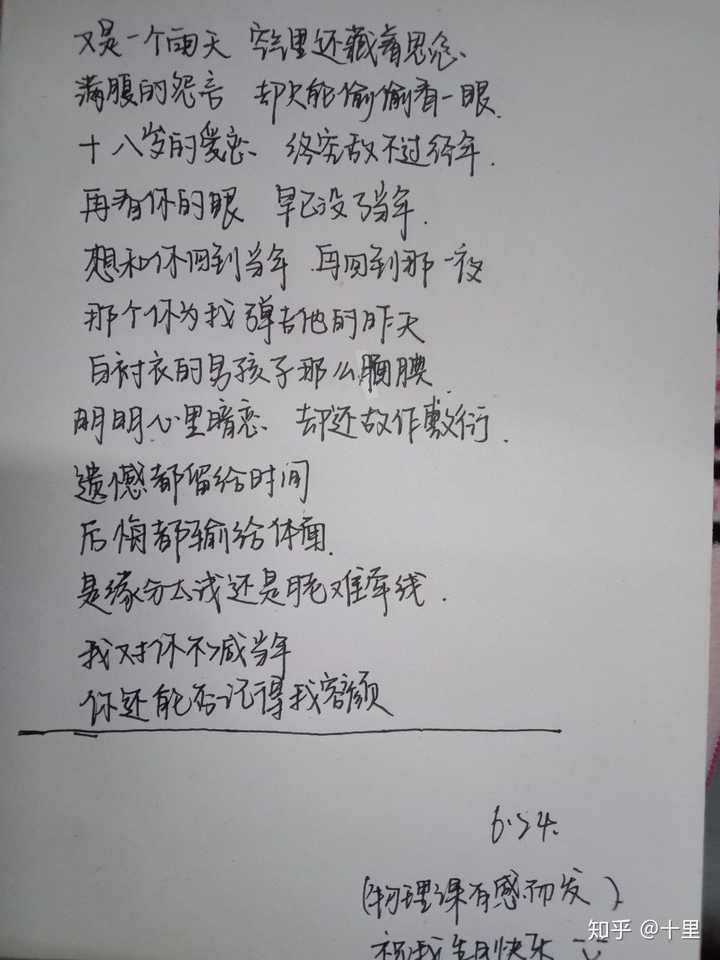 又是一个雨天 空气里还藏着思念、
满腹的怨言 却只能偷偷看一眼.
十八岁的爱恋、终究敌不过经年.
再看你的眼 早已没了当年.
想和你回到当年.再回到那一夜
那个你为我弹吉他的昨天
白衬衣的男孩子那么腼腆.
明明心里暗恋、却还故作敷衍.
遗憾都留给时间
后悔都输给体面.
是缘分太浅还是月老难牵线.
我对你不减当年
你还能否记得我容颜
6.24.
(物理课有感而发)
祝我生日快乐
知乎 @十里